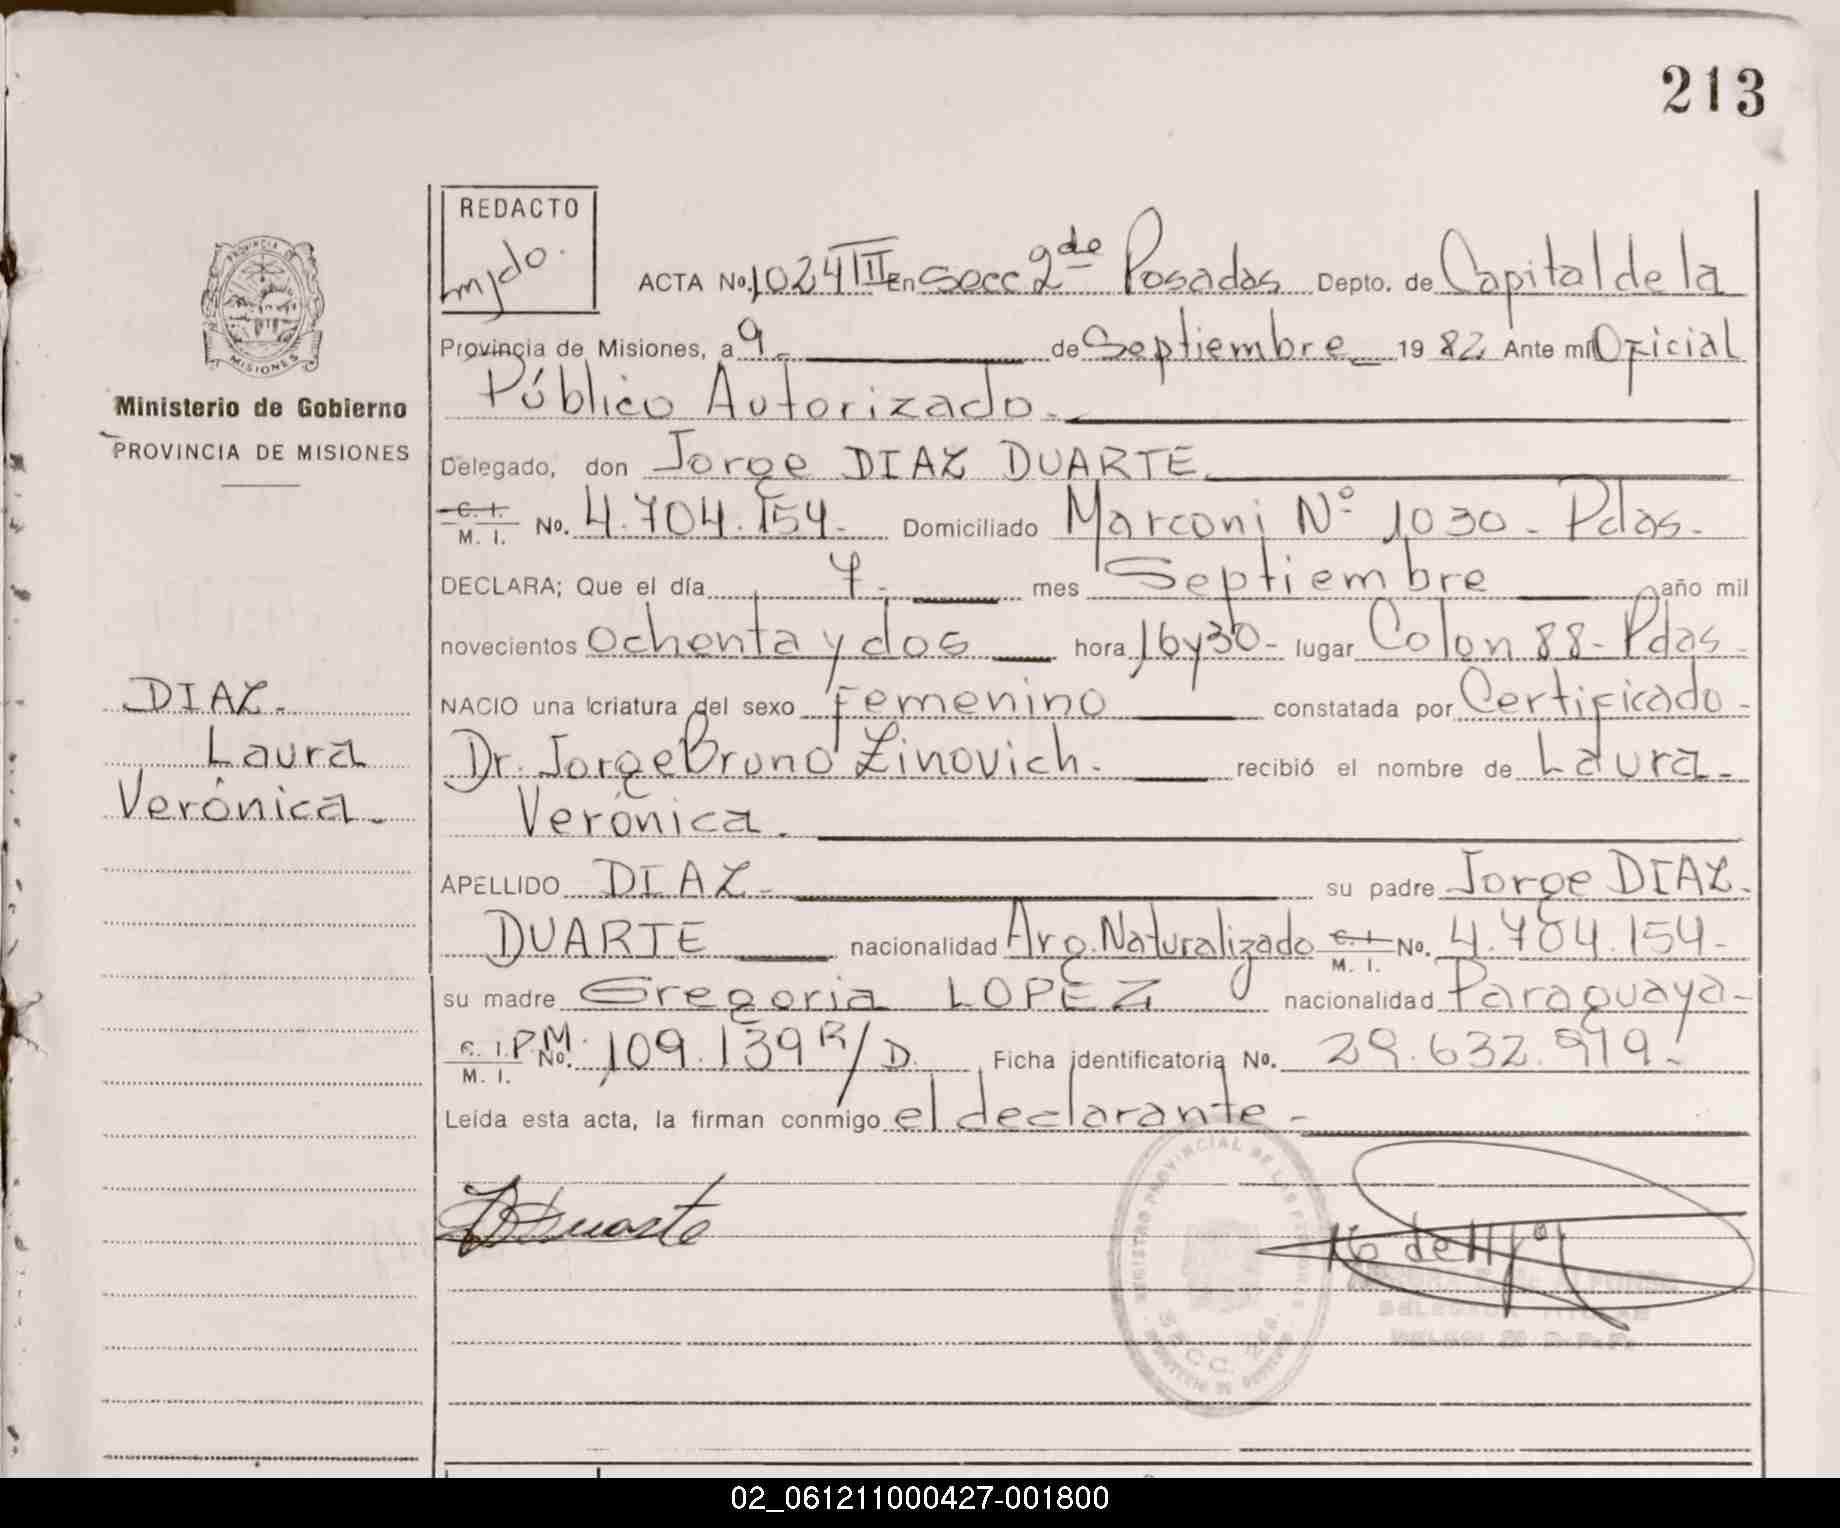 213
REDACTO
mjdo.
ACTA No. 1024 TIII En Secc 2de Posadas Depto. de Capital de la
Provincia de Misiones, a 9 de Septiembre 1982 Ante mí Oficial
Público Autorizado.
Delegado, don Jorge DIAZ DUARTE
C. I. M. I. No. 4.704.154. Domiciliado Marconi Nº 1030 - Pdas.
DECLARA; Que el día 7. mes Septiembre año mil
novecientos ochenta y dos hora 16y30 - lugar Colon 88 - Pdas -
NACIO una criatura del sexo femenino constatada por Certificado -
Dr. Jorge Bruno Zinovich. recibió el nombre de Laura -
Verónica.
APELLIDO DIAZ - su padre Jorge DIAZ.
DUARTE nacionalidad Arg. Naturalizado C. I. M. I. No. 4.704.154 -
su madre Gregoria LOPEZ nacionalidad Paraguaya -
C. I. P. M. M. I. No. 109.139 R/D. Ficha identificatoria No. 29.632.919.-
Leída esta acta, la firman conmigo el declarante -
Duarte
PROVINCIA DE MISIONES
Ministerio de Gobierno
PROVINCIA DE MISIONES
DIAZ.
Laura
Verónica.
REGISTRO PROVINCIAL DE LAS PERSONAS
SECC. 2da.
DELEGADA TITULAR
02_061211000427-001800